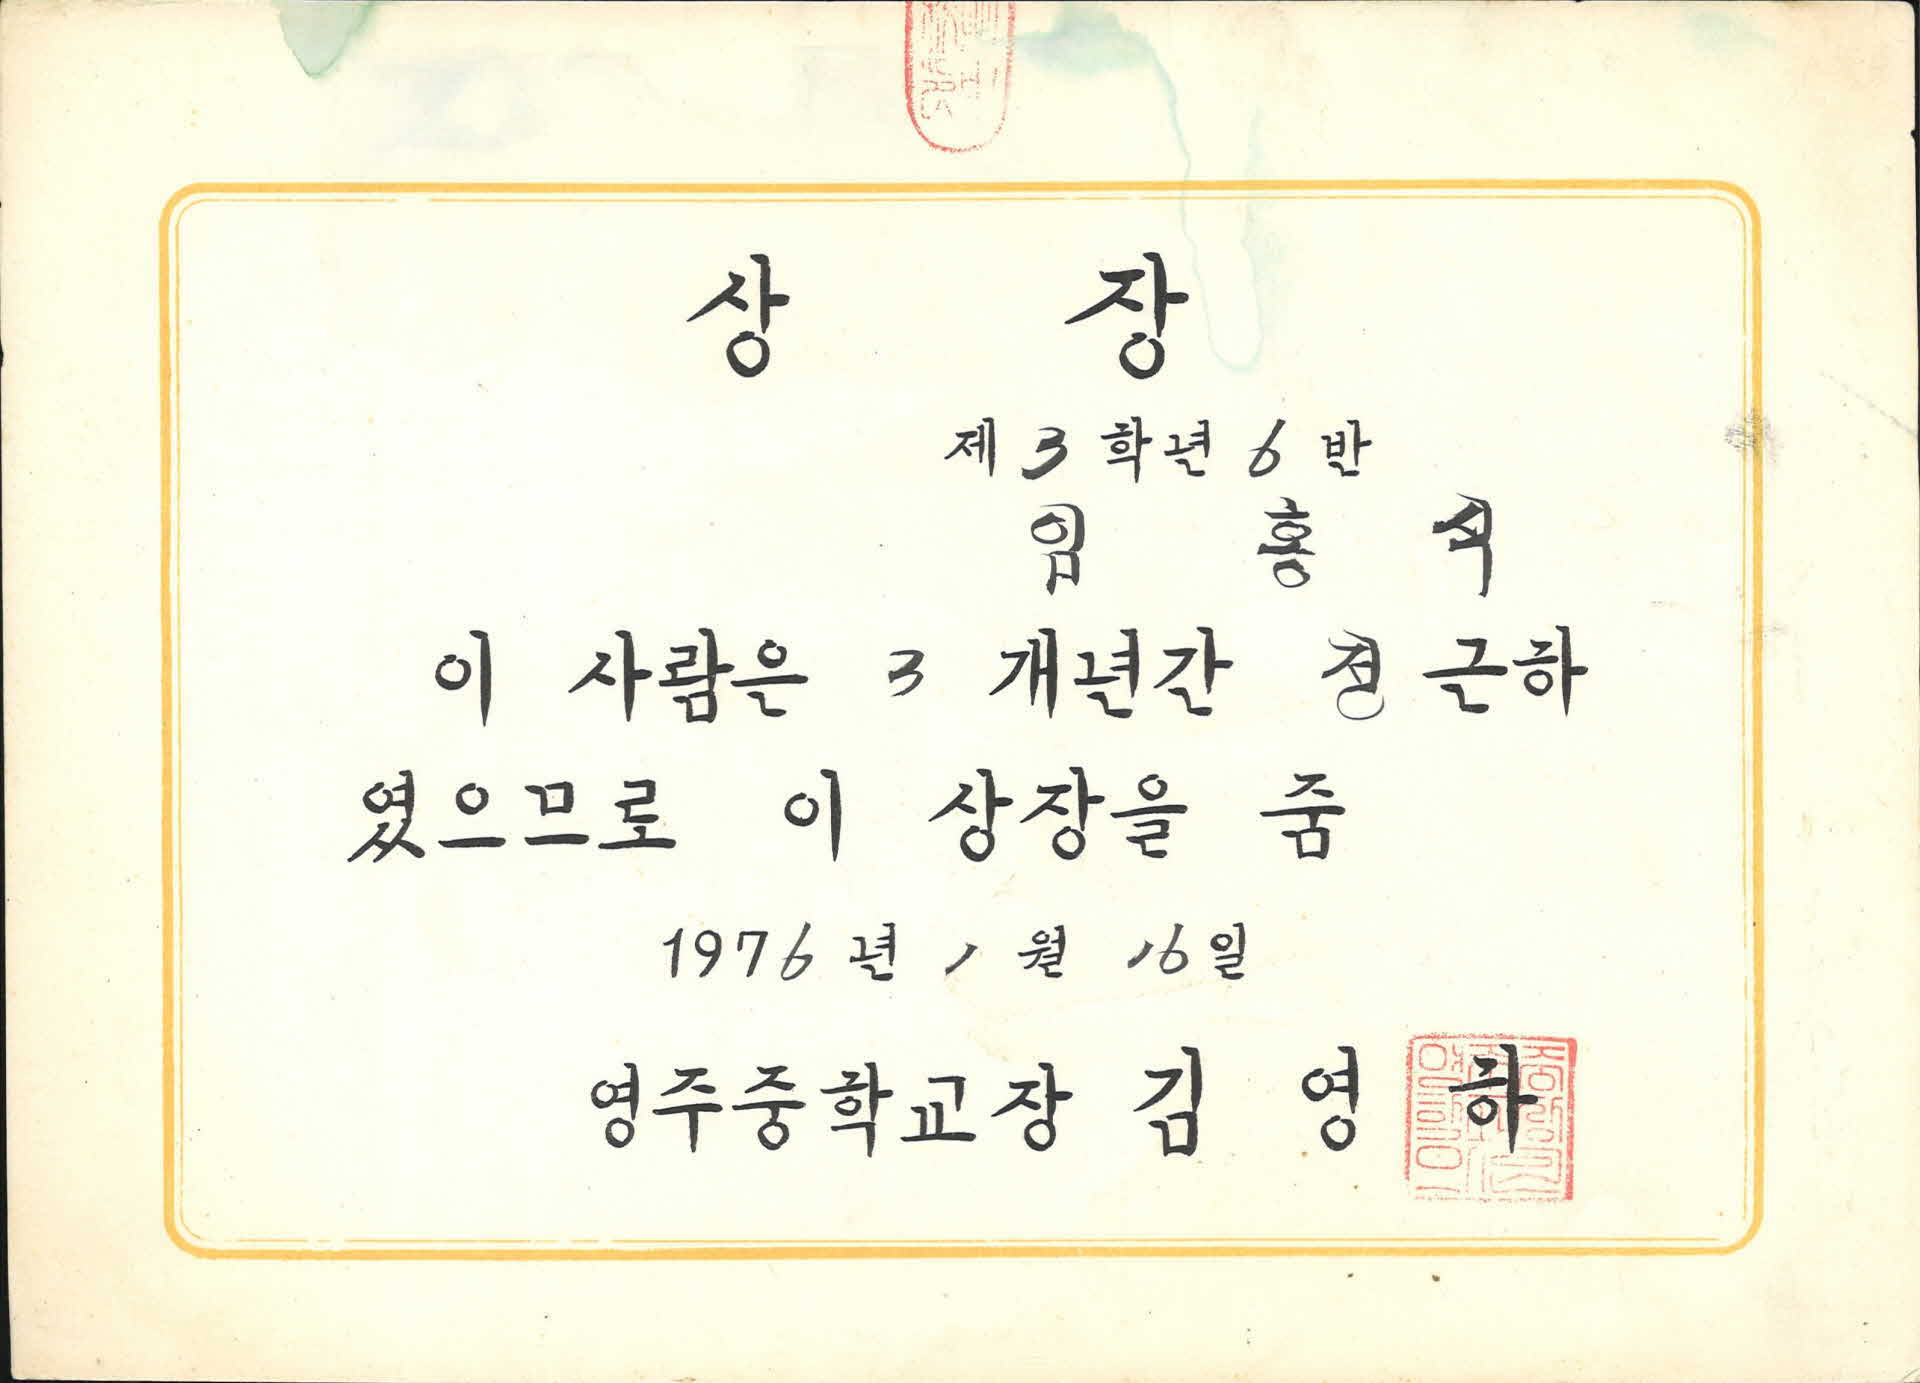 상 장
제 3 학년 6 반
임 홍 석
이 사람은 3 개년간 정근하
였으므로 이 상장을 줌
1976년 1월 16일
영주중학교장 김 영 하